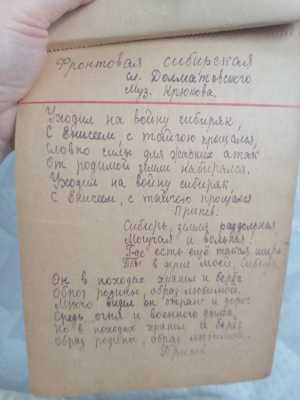 Фронтовая сибирская
сл. Долматовского
Муз. Крюкова.
Уходил на войну сибиряк,
С Енисеем, с тайгою прощался,
Словно силы для жарких атак
От родимой земли набирался.
Уходил на войну сибиряк,
С Енисеем, с тайгою прощался
Припев:
Сибирь, земля раздольная
Могучая и вольная!
Где есть ещё такая ширь
Ты в краю моём, Сибирь
Он в походах хранил и берёг
Образ родины, образ любимой.
Много видел он стран и дорог
Средь огня и военного дыма,
Но в походах хранил и берёг
Образ родины, образ любимой.
Припев